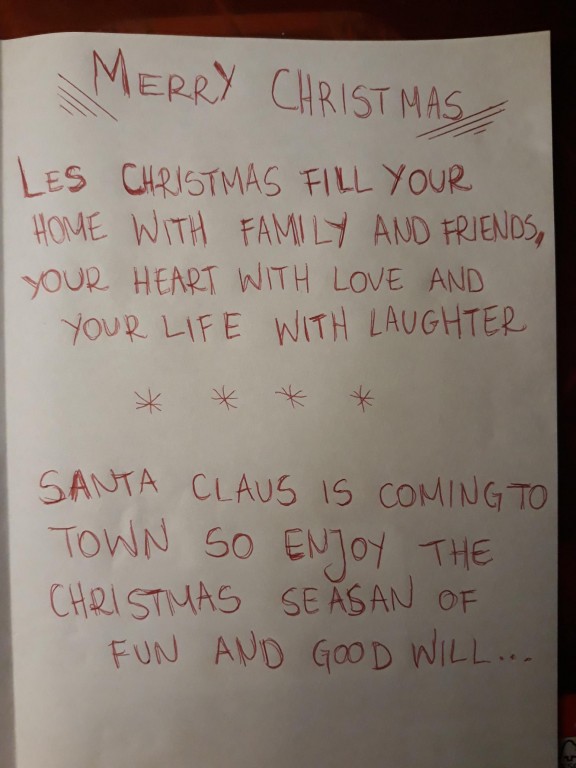 MERRY CHRISTMAS
LES CHRISTMAS FILL YOUR
HOME WITH FAMILY AND FRIENDS,
YOUR HEART WITH LOVE AND
YOUR LIFE WITH LAUGHTER
* * * *
SANTA CLAUS IS COMING TO
TOWN SO ENJOY THE
CHRISTMAS SEASAN OF
FUN AND GOOD WILL...